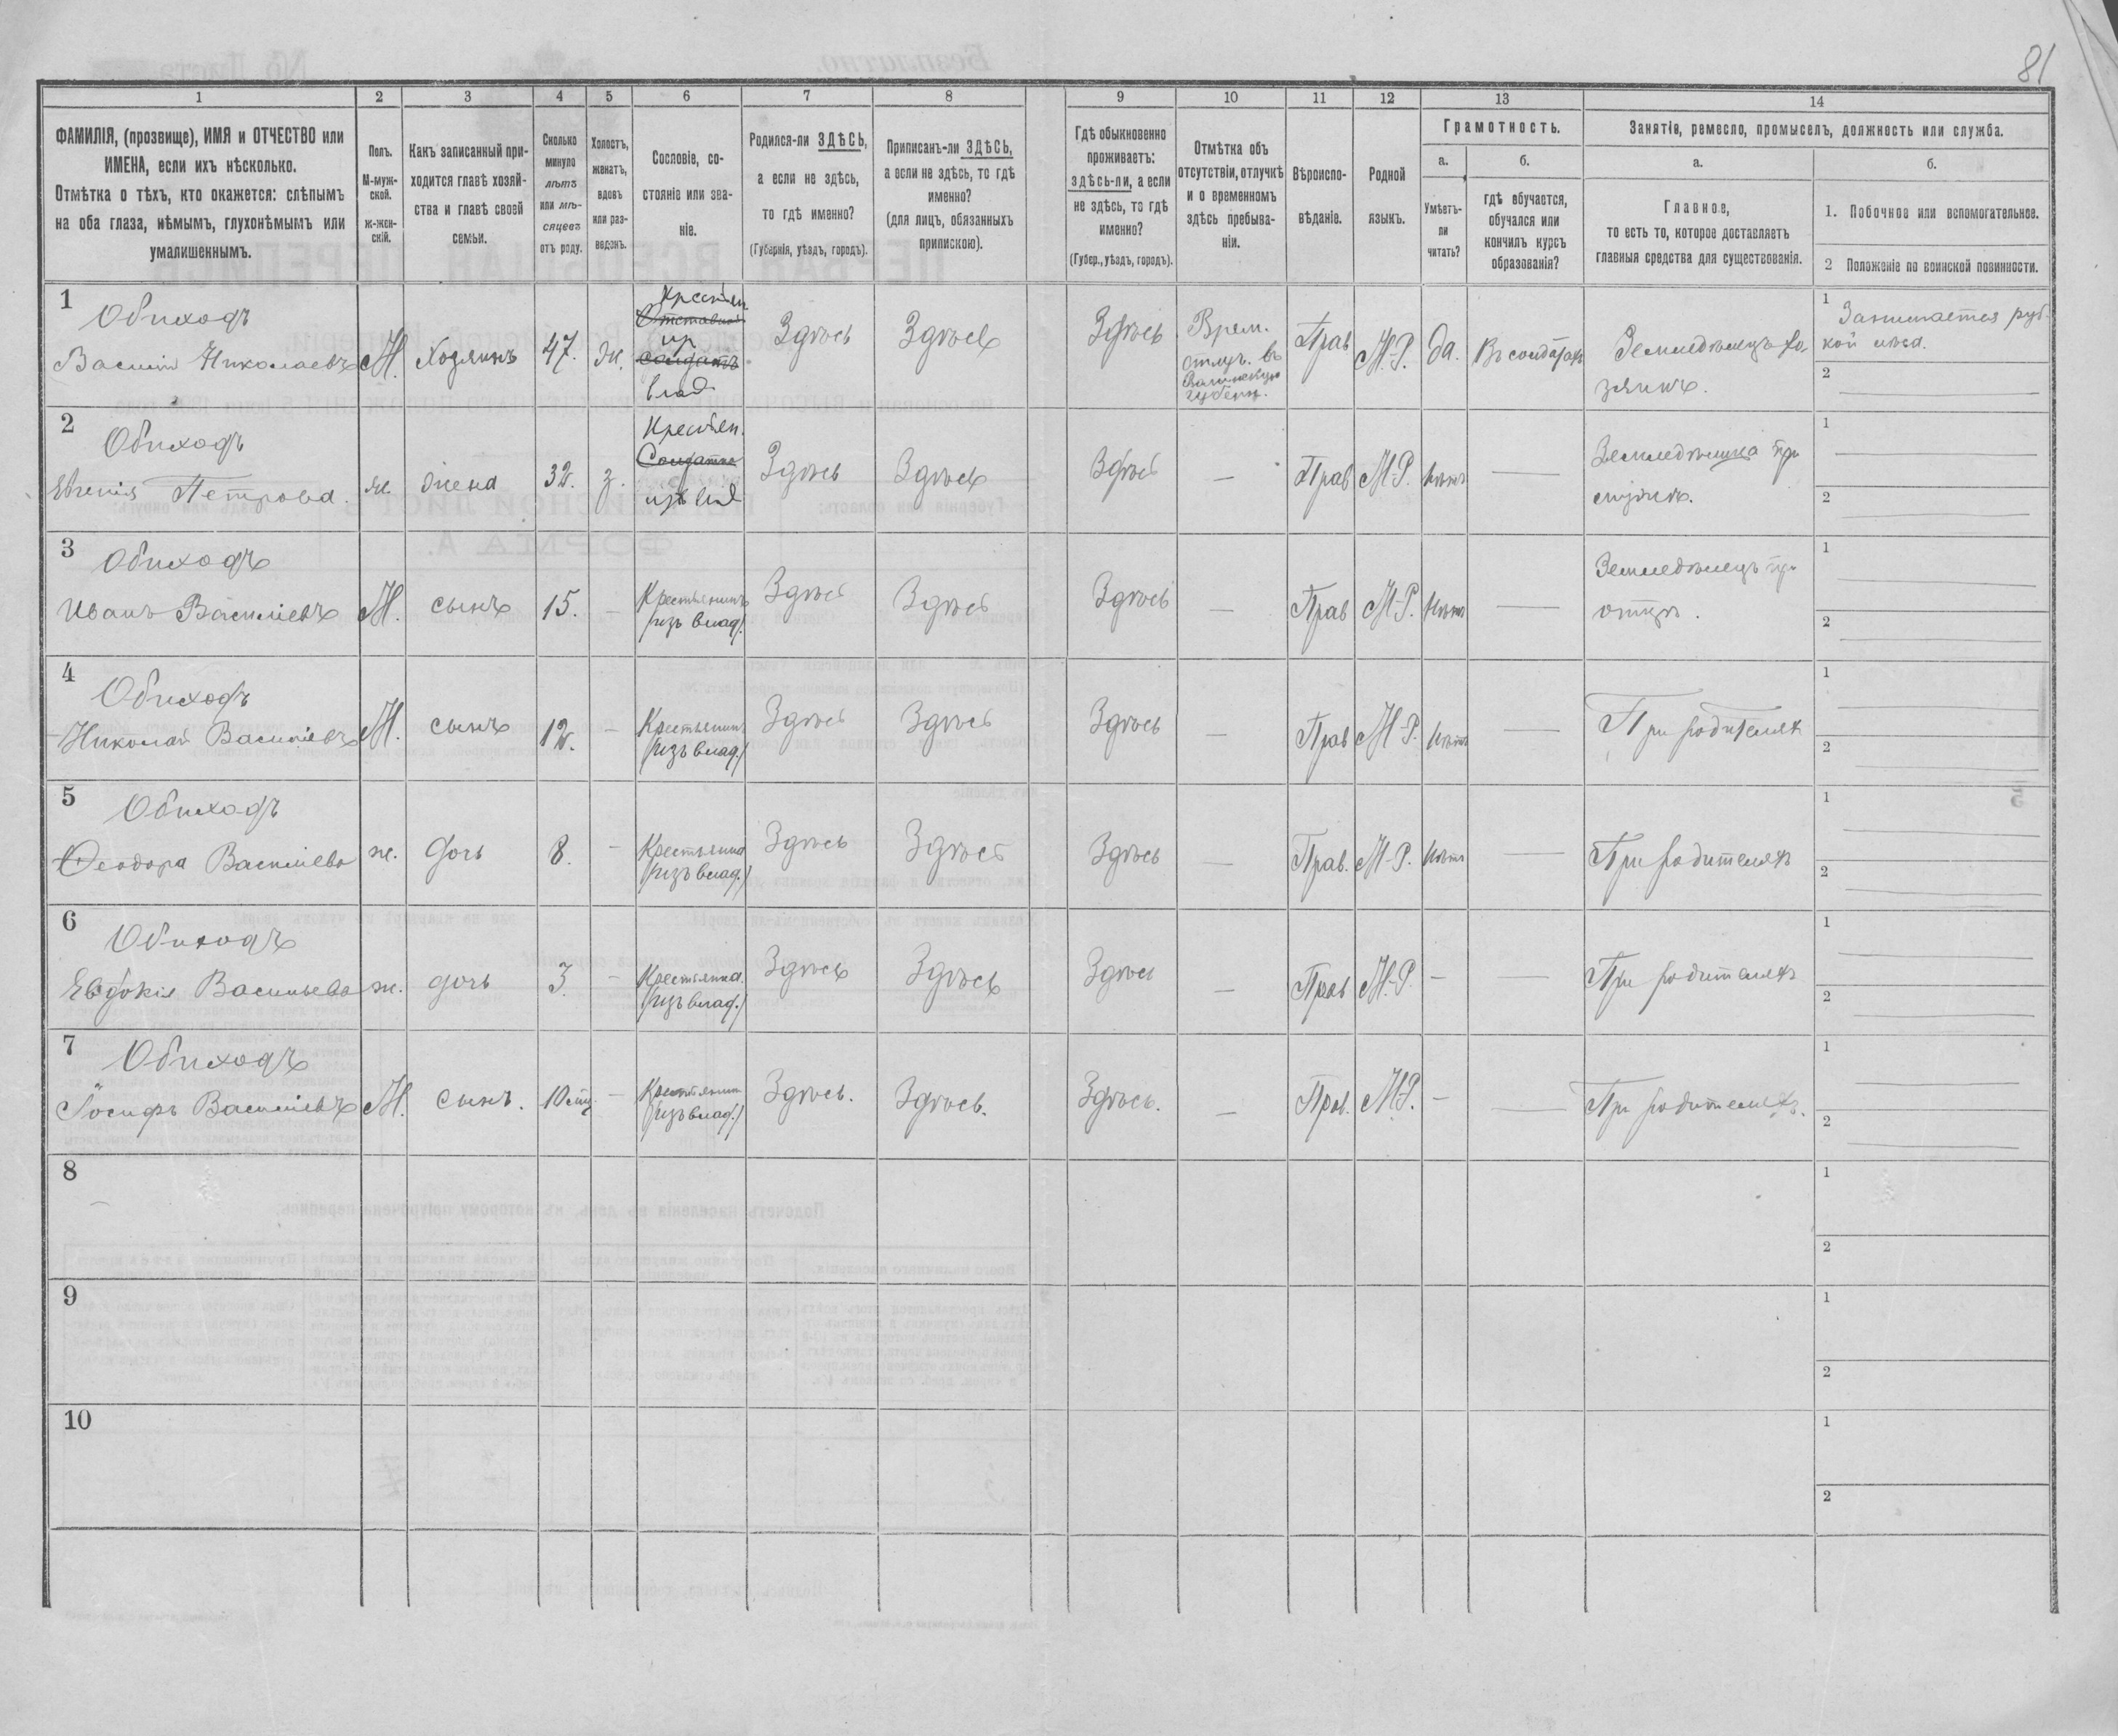 81
1 2 3 4 5 6 7 8 9 10 11 12 13 14
ФАМИЛІЯ, (прозвище), ИМЯ и ОТЧЕСТВО или
ИМЕНА, если ихъ нѣсколько.
Отмѣтка о тѣхъ, кто окажется: слѣпымъ
на оба глаза, нѣмымъ, глухонѣмымъ или
умалишеннымъ.
Полъ.
М-муж-
ской.
ж-жен-
скій.
Какъ записанный при-
ходится главѣ хозяй-
ства и главѣ своей
семьи.
Сколько
минуло
лѣтъ
или мѣ-
сяцевъ
отъ роду.
Холостъ,
женатъ,
вдовъ
или раз-
веденъ.
Сословіе, со-
стояніе или зва-
ніе.
Родился-ли ЗДѢСЬ,
а если не здѣсь,
то гдѣ именно?
(Губернія, уѣздъ, городъ).
Приписанъ-ли ЗДѢСЬ,
а если не здѣсь, то гдѣ
именно?
(для лицъ, обязанныхъ
припискою).
Гдѣ обыкновенно
проживаетъ:
здѣсь-ли, а если
не здѣсь, то гдѣ
именно?
(Губер., уѣздъ, городъ).
Отмѣтка объ
отсутствіи, отлучкѣ
и о временномъ
здѣсь пребыва-
ніи.
Вѣроиспо-
вѣданіе.
Родной
языкъ.
Грамотность.
а.
Умѣетъ-
ли
читать?
б.
гдѣ обучается,
обучался или
кончилъ курсъ
образованія?
Занятіе, ремесло, промыселъ, должность или служба.
а.
Главное,
то есть то, которое доставляетъ
главныя средства для существованія.
б.
1. Побочное или вспомогательное.
2 Положеніе по воинской повинности.
1
Обиходъ
Василій Николаевъ
М. Хозяинъ 47. ж.
Крестьян.
Отставной
из
солдатъ
влад
Здѣсь Здѣсь Здѣсь
Врем.
отлуч. въ
губерн.
Прав М.-Р. да. Въ солдатахъ
Земледѣлецъ хо-
зяинъ.
1 Занимается руб-
кой лѣса.
2
2
Обиходъ
Евгенія Петрова.
ж. жена 32. з.
Крестьян.
Солдатка
изъ влад
Здѣсь Здѣсь Здѣсь — Прав М-Р. Нѣтъ —
Земледѣлица при
мужѣ.
1
2
3
Обиходъ
Иванъ Василіевъ
М. сынъ 15. —
Крестьянинъ
(изъ влад.)
Здѣсь Здѣсь Здѣсь — Прав М-Р. Нѣтъ —
Земледѣлецъ при
отцѣ.
1
2
4
Обиходъ
Николай Василіевъ
М. сынъ 12. —
Крестьянинъ
(изъ влад.)
Здѣсь Здѣсь Здѣсь — Прав М-Р. Нѣтъ —
При родителяхъ
1
2
5
Обиходъ
Феодора Василіева
ж. дочь 8. —
Крестьянка
(изъ влад.)
Здѣсь Здѣсь Здѣсь — Прав. М-Р. Нѣтъ —
При родителяхъ
1
2
6
Обиходъ
Евдокія Васильева
ж. дочь 3. —
Крестьянка
(изъ влад.)
Здѣсь Здѣсь Здѣсь — Прав М.-Р. — —
При родителяхъ
1
2
7
Обиходъ
Іосифъ Василіевъ
М. сынъ. —
Крестьянин
(изъ влад.)
Здѣсь. Здѣсь. Здѣсь. — Прав. М.Р. — —
При родителяхъ.
1
2
8
1
2
9
1
2
10
1
2